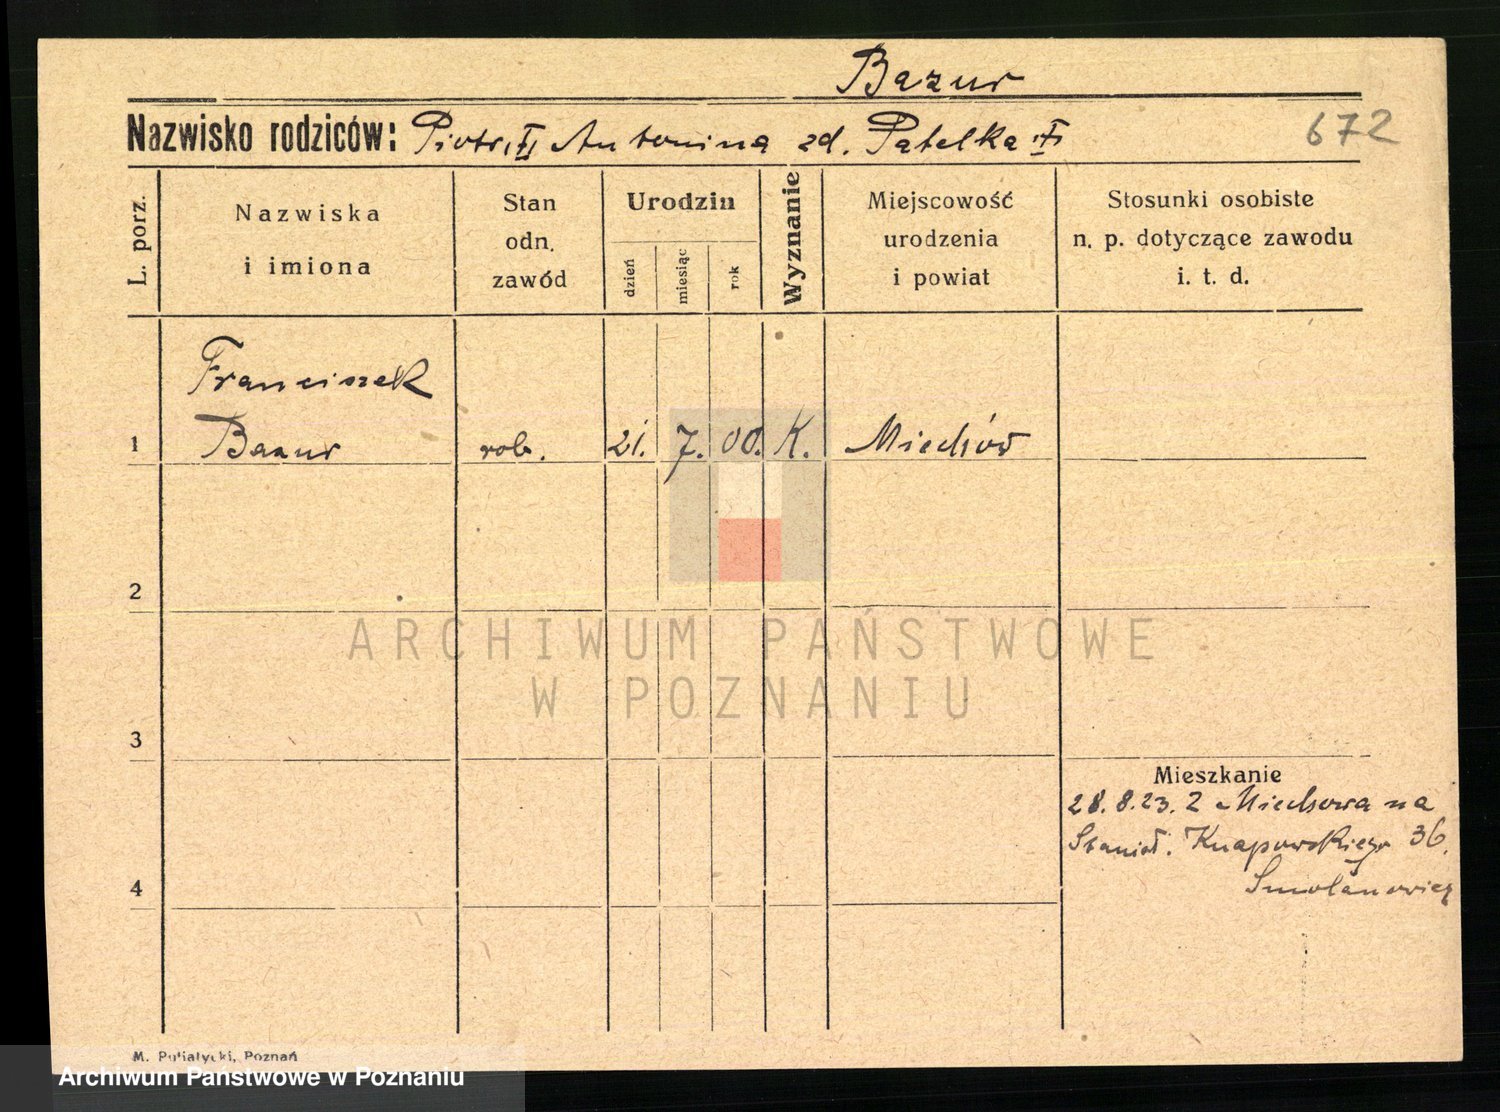 Bazur
Nazwisko rodziców: Piotr, Antonina zd. Patelka
672
L. porz.
Nazwiska
i imiona
Stan
odn.
zawód
Urodzin
dzień
miesiąc
rok
Wyznanie
Miejscowość
urodzenia
i powiat
Stosunki osobiste
n. p. dotyczące zawodu
i. t. d.
Franciszek
1 Bazur rob. 21. 7. 00. K. Miechów
2
ARCHIWUM PAŃSTWOWE
W POZNANIU
3
Mieszkanie
28.8.23. z Miechowa na
Knapowskiego 36.
4
Smolanowicz
M. Putiatycki, Poznań
Archiwum Państwowe w Poznaniu